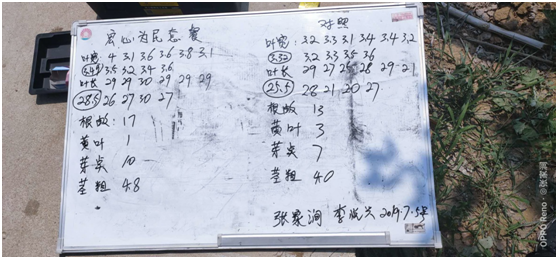 思心为民套餐
叶宽: 4 3.1 3.6 3.6 3.8 3.1
3.45 3.5 3.2 3.4 3.6
叶长 29 29 30 29 29 29
28.5 26 27 30 27
根数: 17
黄叶 1
芽尖 10
茎粗 4.8
对照
叶宽: 3.2 3.3 3.1 3.4 3.4 3.2
3.32 3.2 3.3 3.5 3.6
叶长 29 27 25 28 29 21
25.5 28 21 20 27
根数 13
黄叶 3
芽尖 7
茎粗 4.0
张家润 李
2019.7.5号
OPPO Reno · @张家润